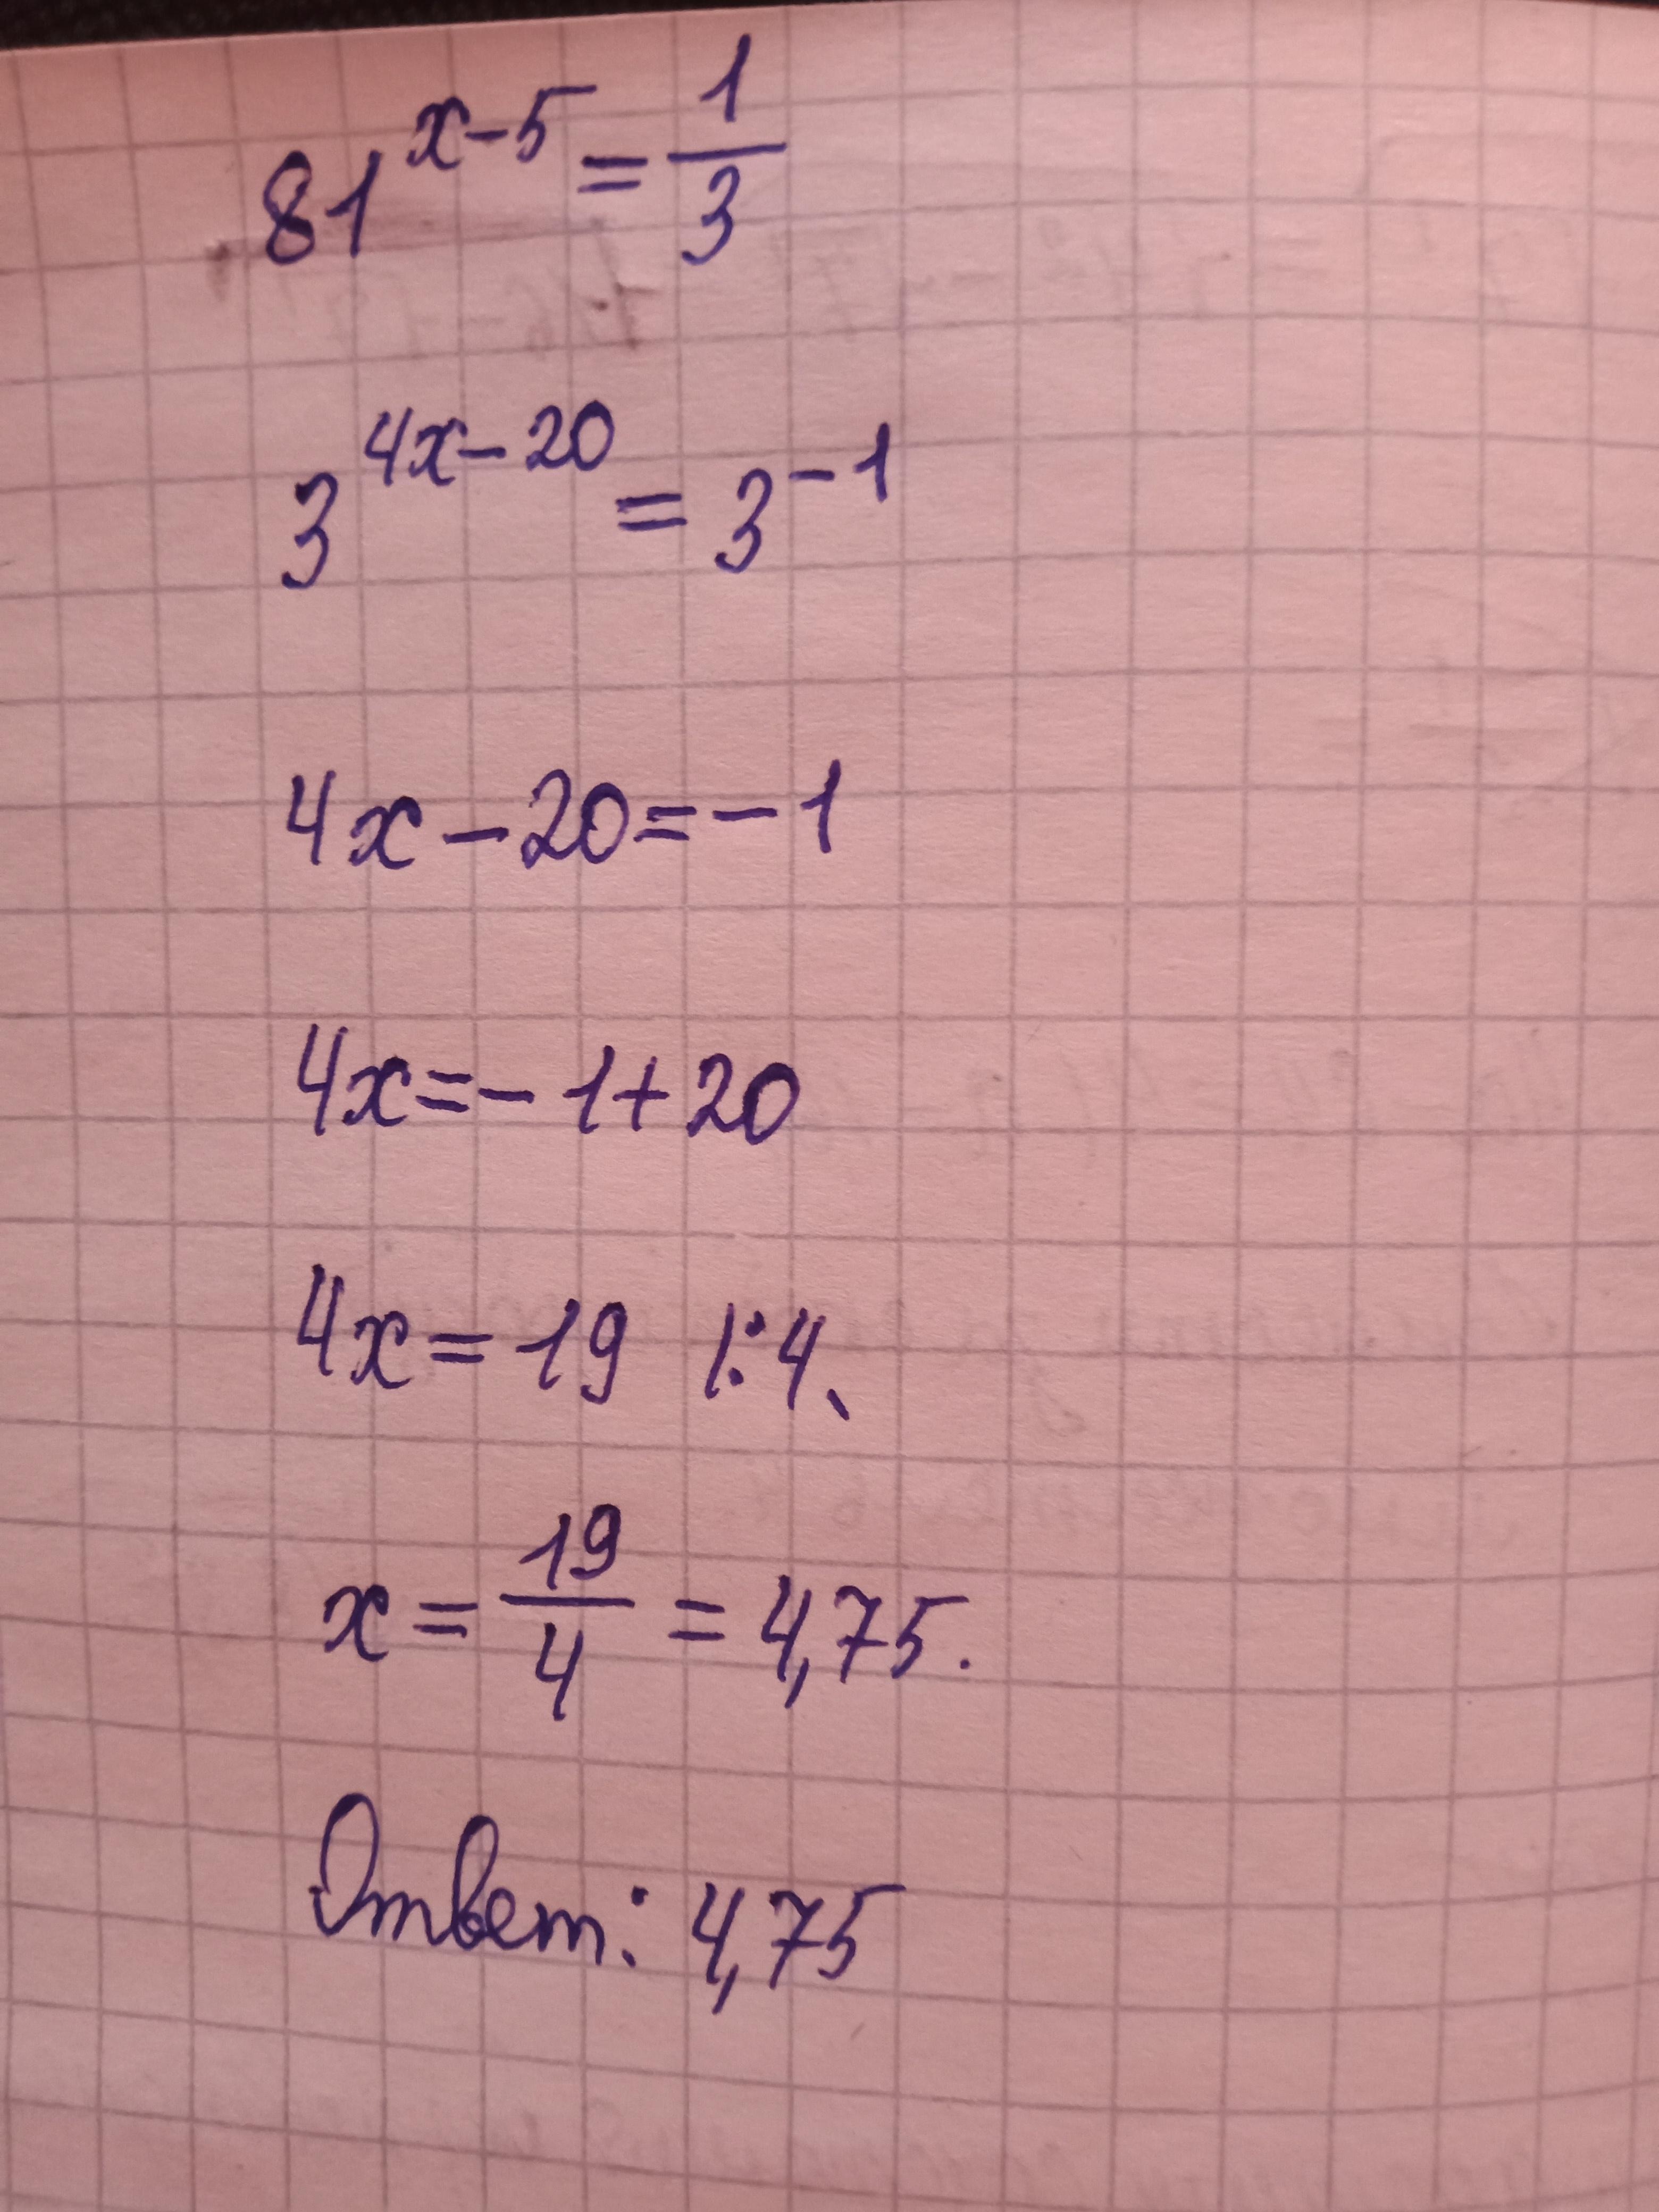 81^{x-5} = \frac{1}{3}
3^{4x-20} = 3^{-1}
4x - 20 = -1
4x = -1 + 20
4x = 19 |:4
x = \frac{19}{4} = 4,75.
Ответ: 4,75